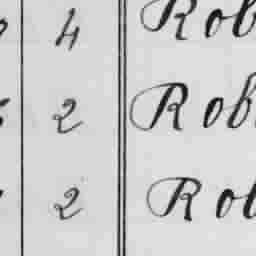 4 Rob
2 Rob
2 Rob